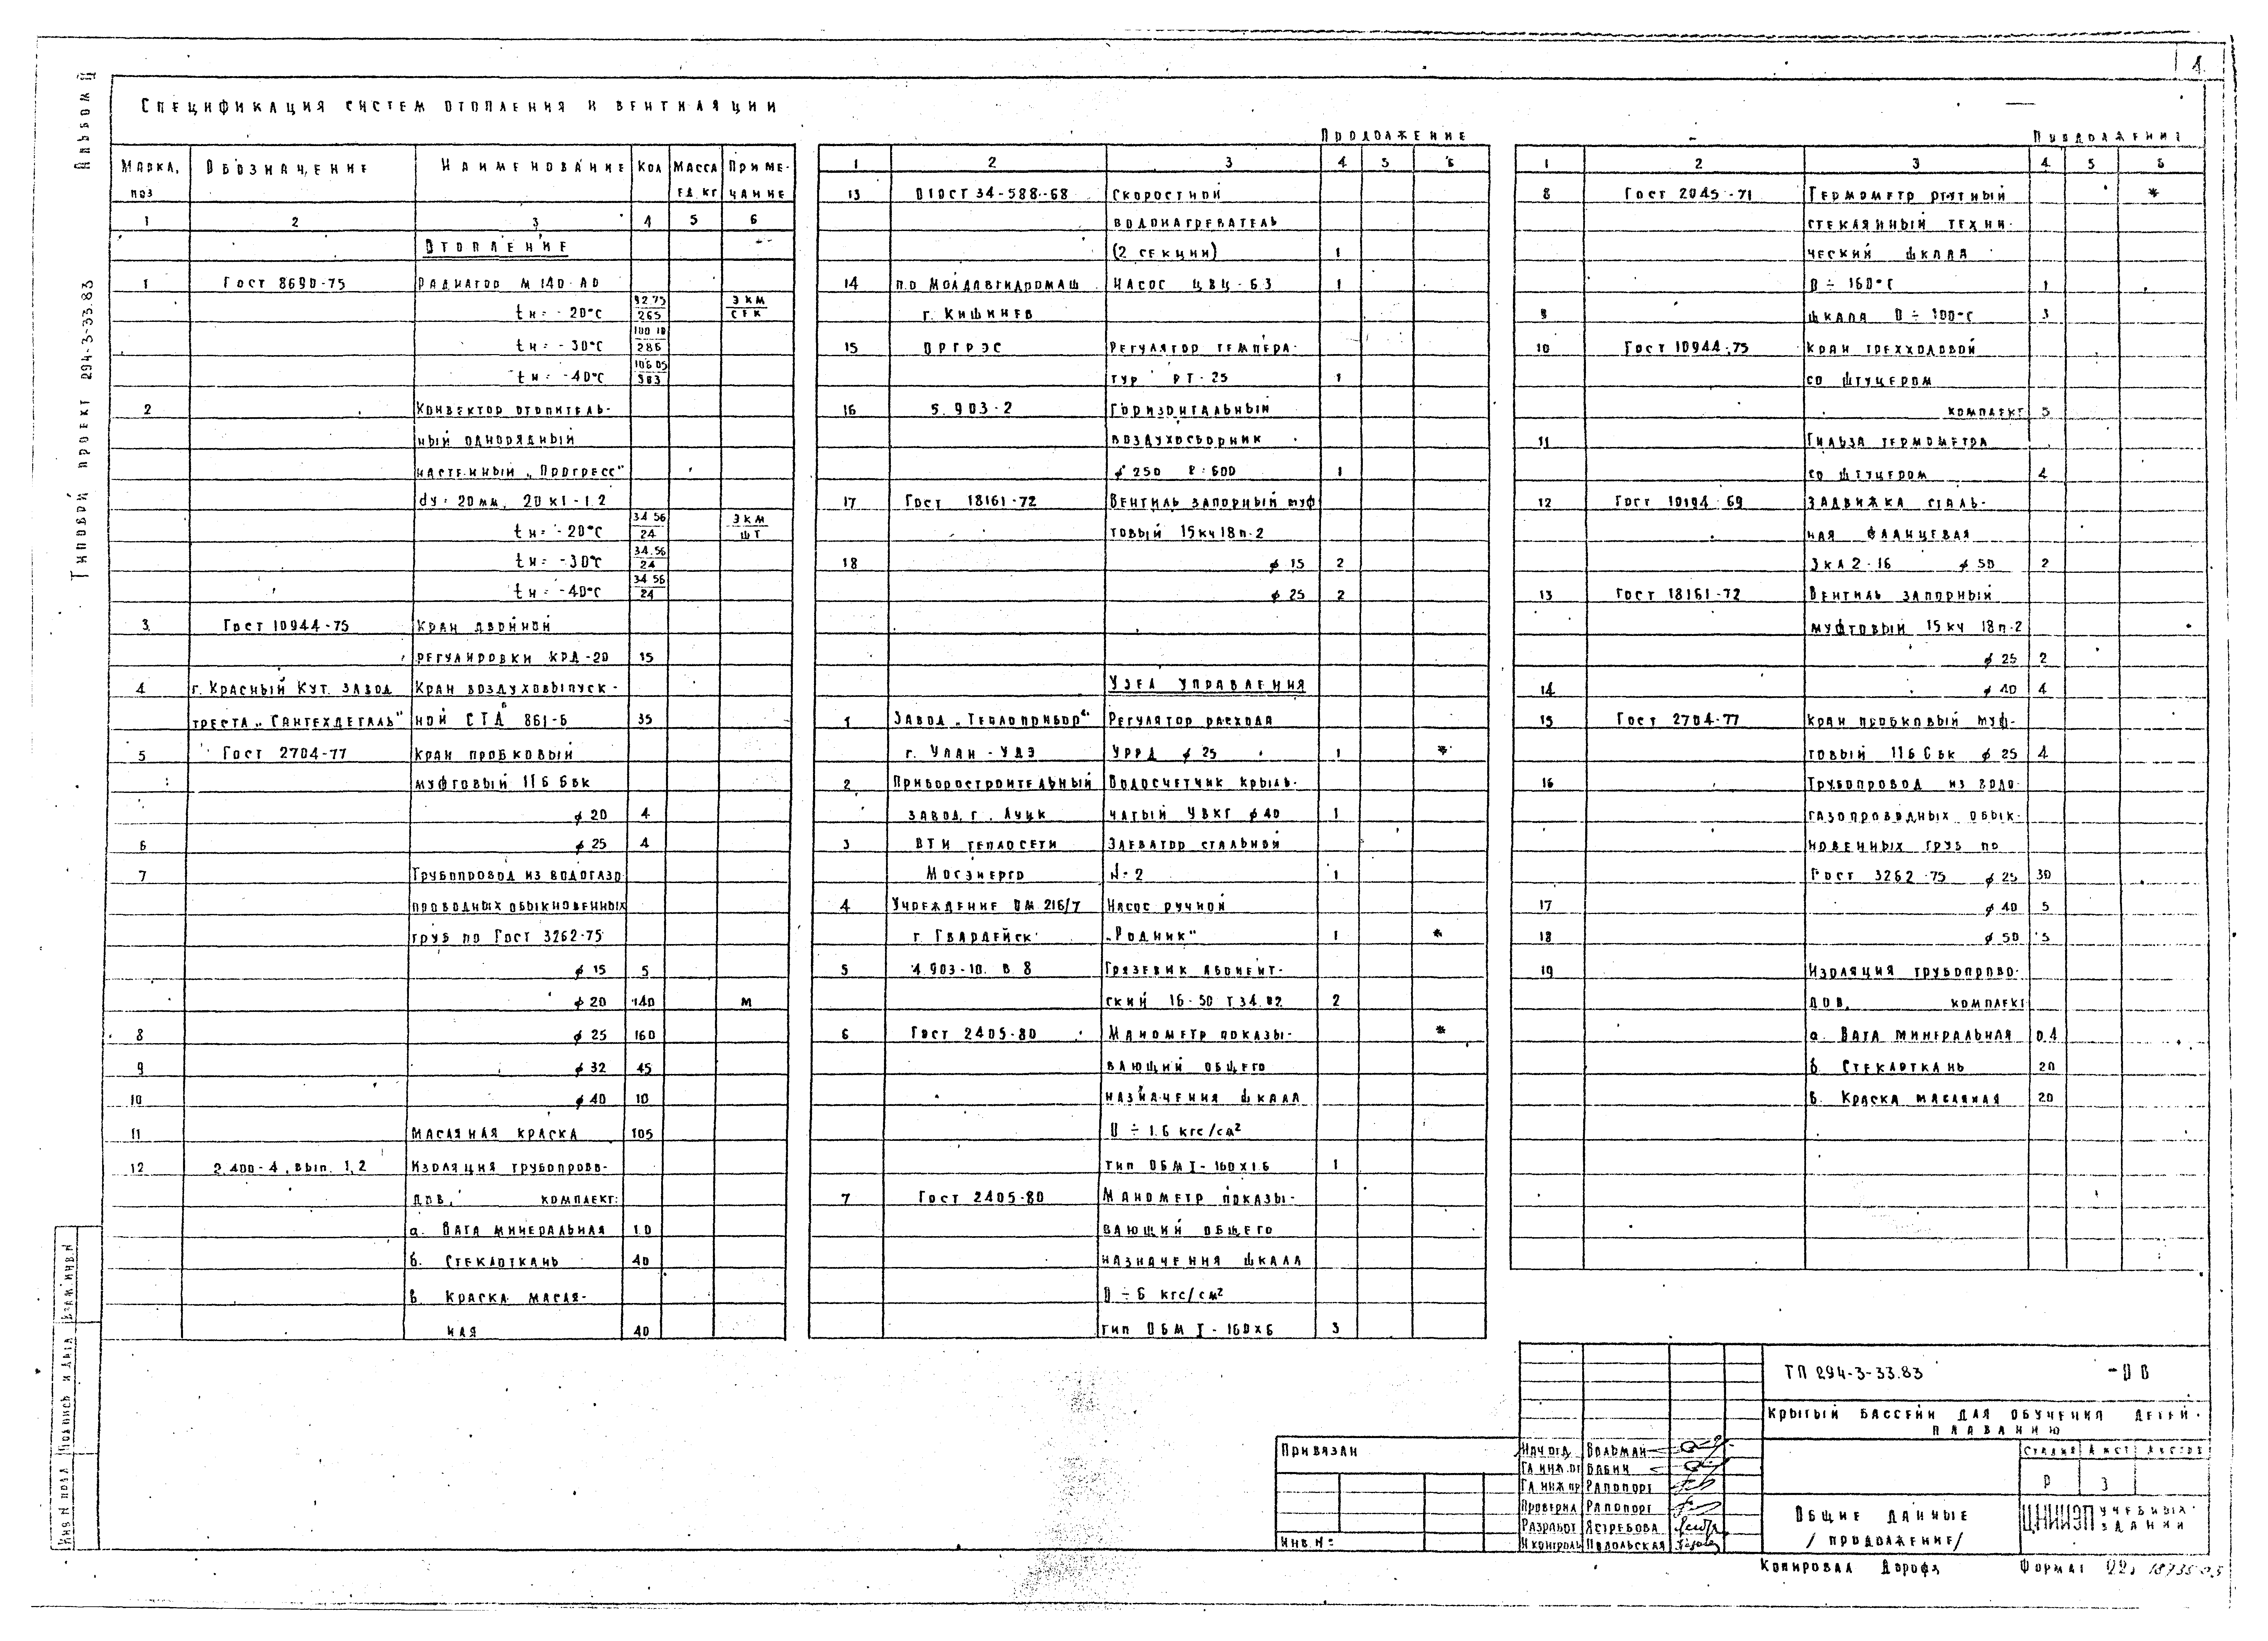 4
Альбом II
Типовой проект 294-3-33.83
Спецификация систем отопления и вентиляции
Марка, поз | Обозначение | Наименование | Кол | Масса ед. кг | Примечание
1 | 2 | 3 | 4 | 5 | 6
Отопление
1 | Гост 8690-75 | Радиатор М 140-АО
tн = -20°С | 92.75/265 | ЭКМ/СЕК
tн = -30°С | 100.10/286
tн = -40°С | 106.05/303
2 | Конвектор отопитель-
ный однорядный
настенный „Прогресс"
dу = 20мм, 20 К1-1.2
tн = -20°С | 34.56/24 | ЭКМ/ШТ
tн = -30°С | 34.56/24
tн = -40°С | 34.56/24
3 | Гост 10944-75 | Кран двойной
регулировки КРД-20 | 15
4 | г. Красный Кут. завод | Кран воздуховыпуск-
треста „Сантехдеталь" | ной СТД 861-б | 35
5 | Гост 2704-77 | Кран пробковый
муфтовый 11б 6бк
ø 20 | 4
6 | ø 25 | 4
7 | Трубопровод из водогазо
проводных обыкновенных
труб по Гост 3262-75
ø 15 | 5
ø 20 | 140 | м
8 | ø 25 | 160
9 | ø 32 | 45
10 | ø 40 | 10
11 | Масляная краска | 105
12 | 2.400-4, вып. 1,2 | Изоляция трубопрово-
дов, комплект:
а. Вата минеральная | 1.0
б. Стеклоткань | 40
в. Краска масля-
ная | 40
Продолжение
1 | 2 | 3 | 4 | 5 | 6
13 | ОГОСТ 34-588-68 | Скоростной
водонагреватель
(2 секции) | 1
14 | п.о Молдавгидромаш | Насос ЦВЦ-6.3 | 1
г. Кишинев
15 | ОРГРЭС | Регулятор темпера-
тур РТ-25 | 1
16 | 5.903-2 | Горизонтальный
воздухосборник
ø 250 ℓ=600 | 1
17 | Гост 18161-72 | Вентиль запорный муф
товый 15кч18п-2
18 | ø 15 | 2
ø 25 | 2
Узел управления
1 | Завод „Теплоприбор" | Регулятор расхода
г. Улан-Удэ | УРРД ø 25 | 1 | *
2 | Приборостроительный | Водосчетчик крыль-
завод, г. Луцк | чатый УВКГ ø 40 | 1
3 | ВТИ теплосети | Элеватор стальной
Мосэнерго | №2 | 1
4 | Учреждение ОМ 216/7 | Насос ручной
г Гвардейск | „Родник" | 1 | *
5 | 4.903-10. В 8 | Грязевик абонент-
ский 16-50 Т34.02 | 2
6 | Гост 2405-80 | Манометр показы- | *
вающий общего
назначения шкала
0 ÷ 1.6 кгс/см²
тип ОБМ I-160х1.6 | 1
7 | Гост 2405-80 | Манометр показы-
вающий общего
назначения шкала
0 ÷ 6 кгс/см²
тип ОБМ I-160х6 | 3
Продолжение
1 | 2 | 3 | 4 | 5 | 6
8 | Гост 2045-71 | Термометр ртутный | *
стеклянный техни-
ческий шкала
0 ÷ 160°С | 1
9 | шкала 0 ÷ 100°С | 3
10 | Гост 10944-75 | Кран трехходовой
со штуцером
комплект | 5
11 | Гильза термометра
со штуцером | 4
12 | Гост 10194-69 | Задвижка сталь-
ная фланцевая
ЗКЛ2-16 ø 50 | 2
13 | Гост 18161-72 | Вентиль запорный
муфтовый 15кч 18п-2
ø 25 | 2
14 | ø 40 | 4
15 | Гост 2704-77 | Кран пробковый муф-
товый 11б 6бк ø 25 | 4
16 | Трубопровод из водо-
газопроводных обык-
новенных труб по
Гост 3262-75 ø 25 | 30
17 | ø 40 | 5
18 | ø 50 | 5
19 | Изоляция трубопрово-
дов, комплект
а. Вата минеральная | 0.4
б. Стеклоткань | 20
в. Краска масляная | 20
ТП 294-3-33.83 -ОВ
Крытый бассейн для обучения детей
плаванию
Стадия | Лист | Листов
Р | 3
Общие данные
/продолжение/
ЦНИИЭП учебных
зданий
Привязан
Инв.№
Нач отд | Вольман
Гл инж.от | Бабин
Гл инж пр | Рапопорт
Проверил | Рапопорт
Разработ | Ястребова
Н контроль | Подольская
Копировал Дорофа Формат 22 18735-03
Инв № подл | Подпись и дата | Взам инв.№